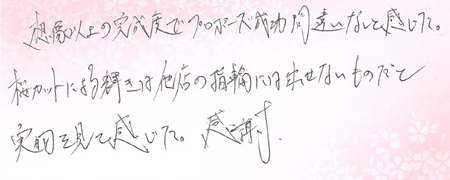 想像以上の完成度でプロポーズ成功間違いなしと感じた。
桜カットによる輝きは他店の指輪には出せないものだと
実物を見て感じた。感謝す.